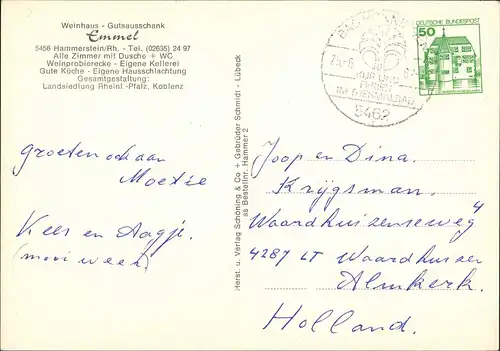 Weinhaus - Gutsausschank
Emmel
5456 Hammerstein/Rh. - Tel. (02635) 24 97
Alle Zimmer mit Dusche + WC
Weinprobierecke - Eigene Kellerei
Gute Küche - Eigene Hausschlachtung
Gesamtgestaltung:
Landsiedlung Rheinl.-Pfalz, Koblenz
Groeten ook aan
Moetie
Kees en Aagje.
(mooi weer)
Herst. u. Verlag Schöning & Co + Gebrüder Schmidt - Lübeck
ss Bestellnr. Hammer 2
KUR UND
5462
DEUTSCHE BUNDESPOST
50
Joop en Dina.
Krijgsman.
Waardhuizenseweg 4
4287 LT Waardhuizen
Almkerk.
Holland.